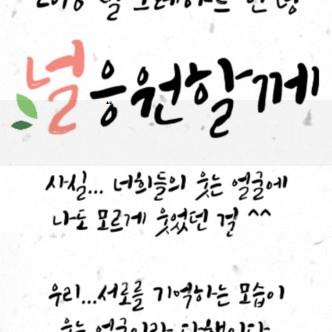 널 응원할게
사실... 너희들의 웃는 얼굴에
나도 모르게 웃었던 걸 ^^
우리...서로를 기억하는 모습이
웃는 얼굴이라 다행이다